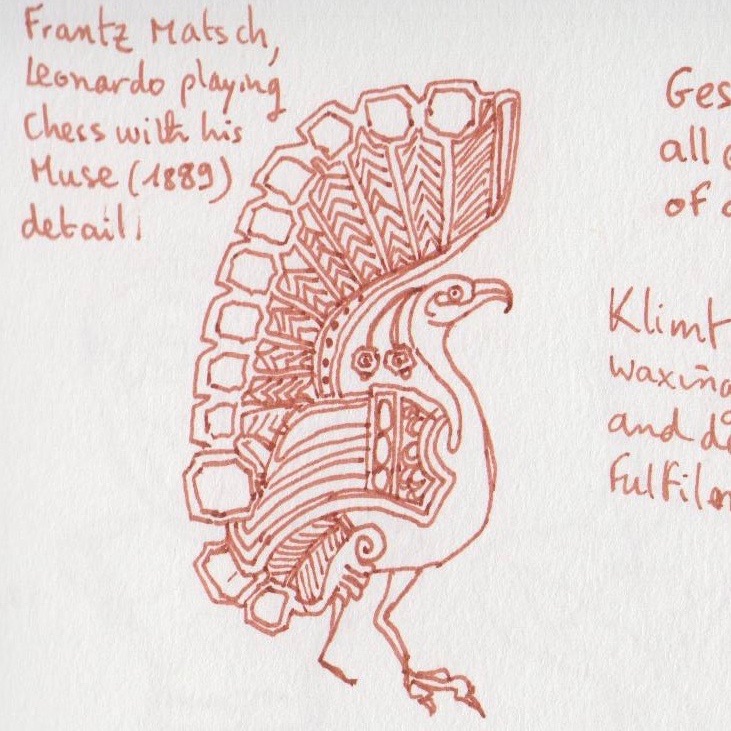 Frantz Matsch,
Leonardo playing
Chess with his
Muse (1889)
detail.
Ges
all
of
Klimt
waxing
and